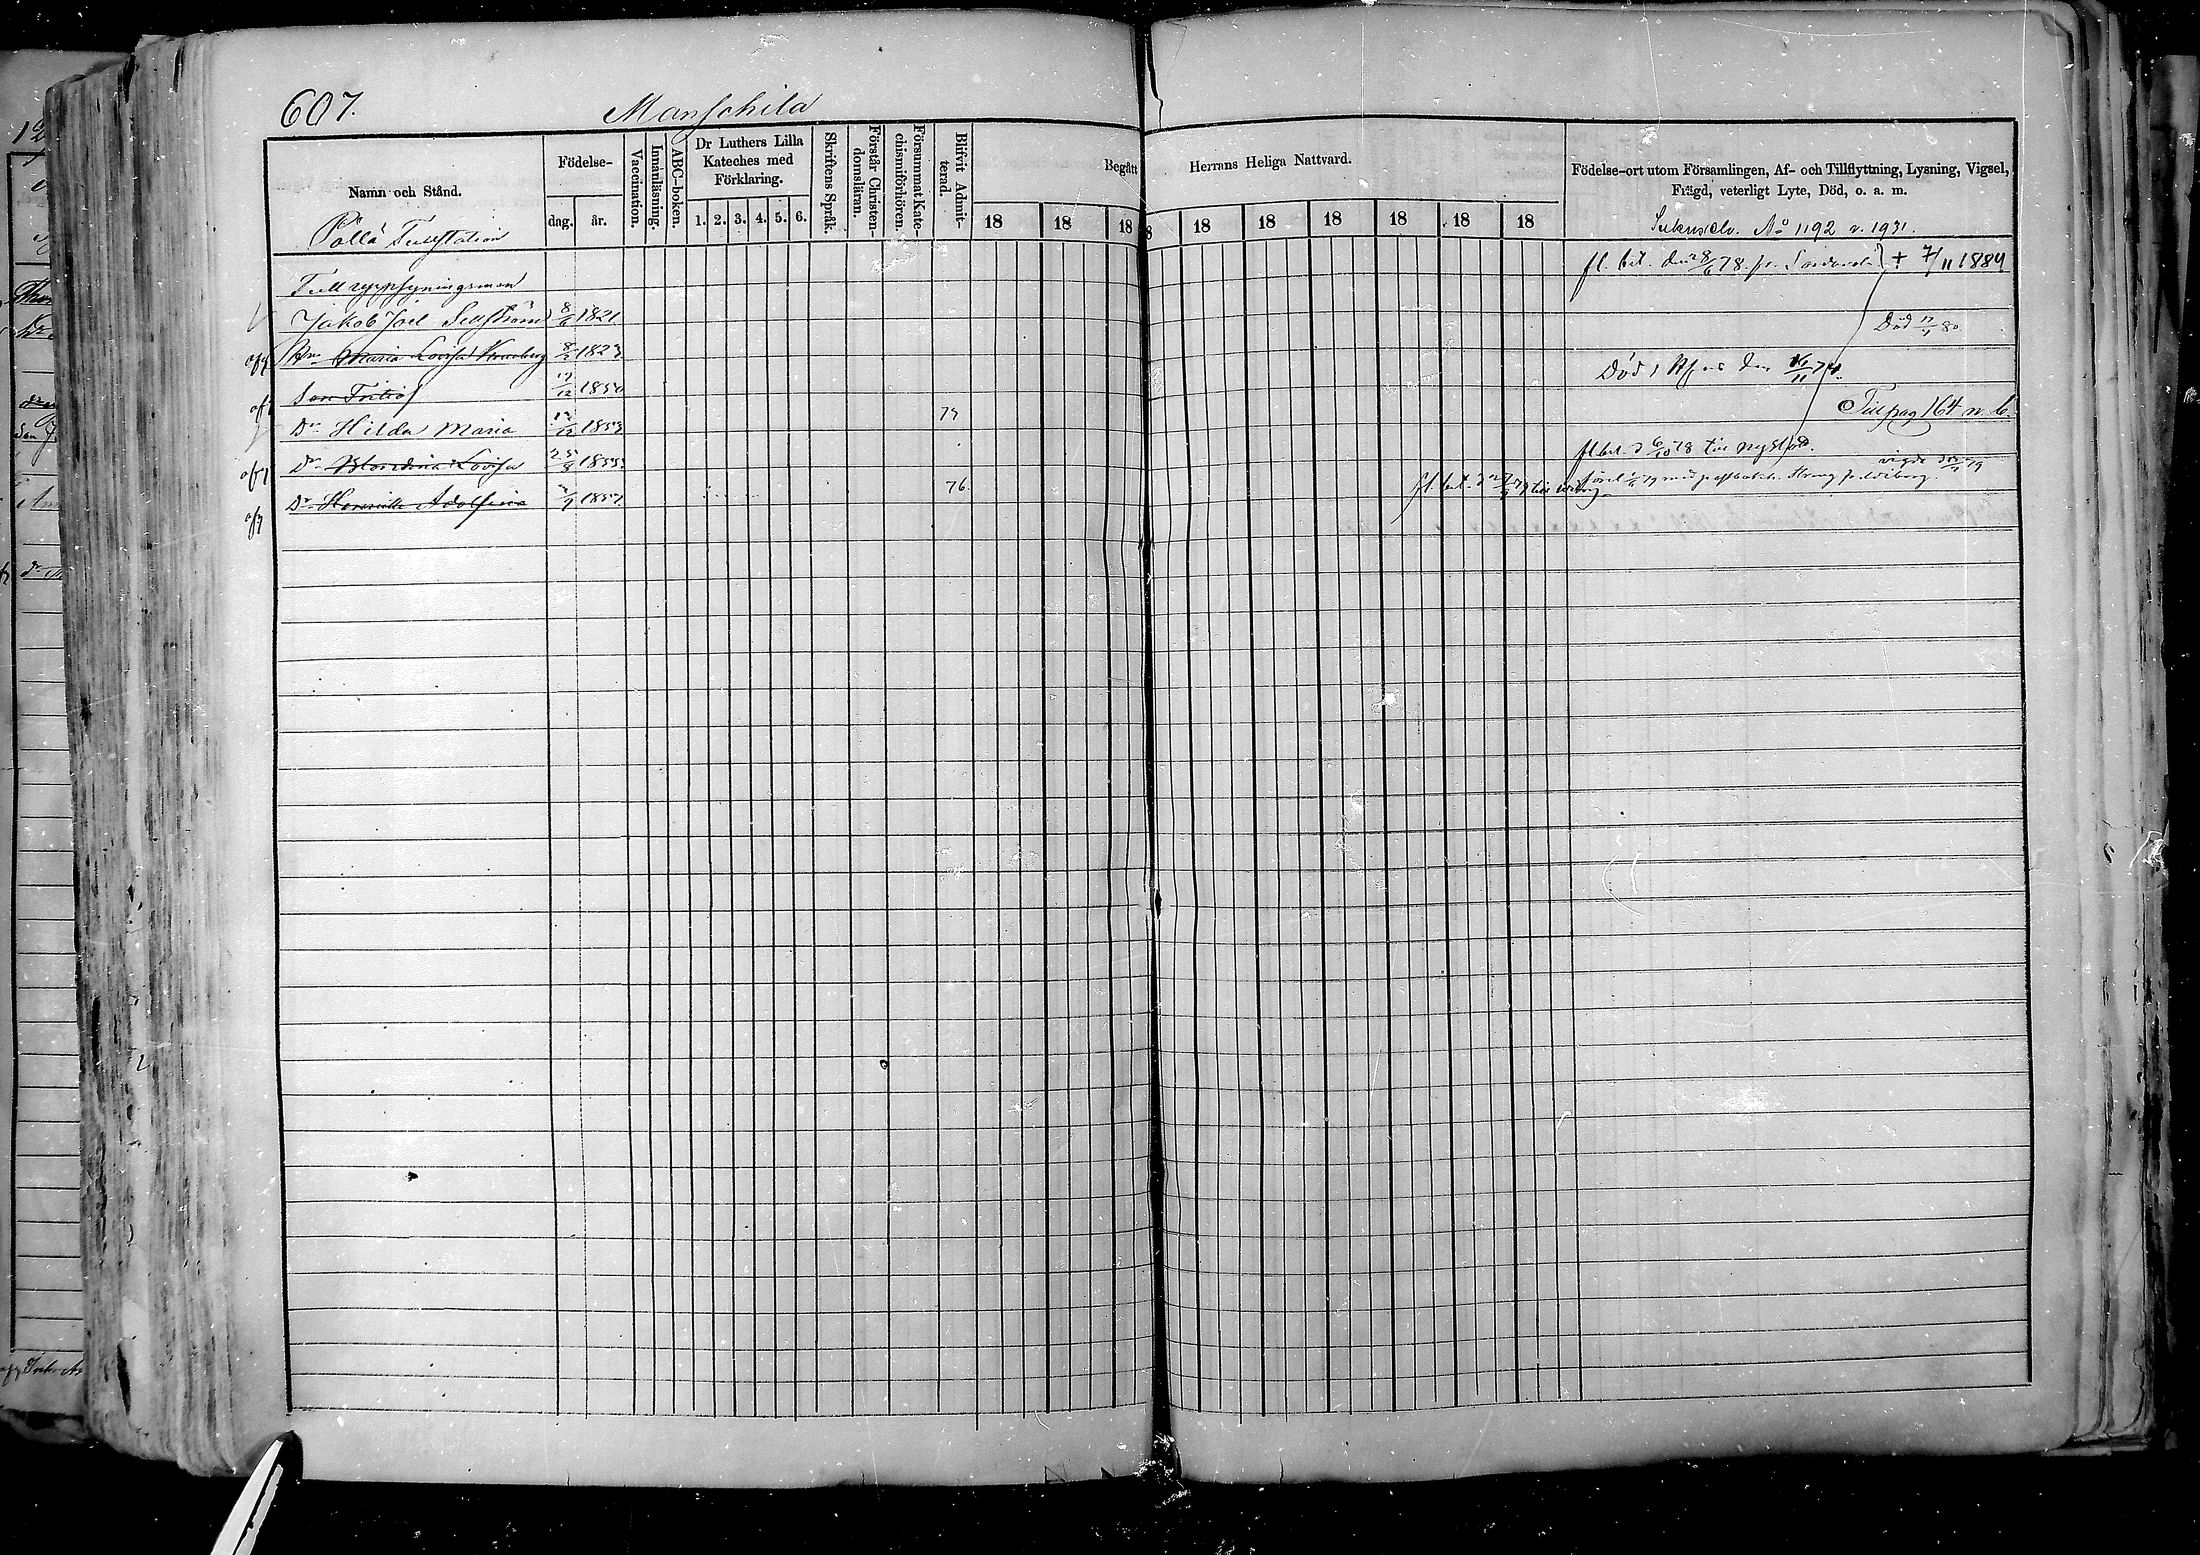 607.
Manschila
Namn och Stånd.
Födelse-
dag. år.
Vaccination.
Innanläsning.
ABC-boken.
Dr Luthers Lilla Kateches med Förklaring.
1. 2. 3. 4. 5. 6.
Skriftens Språk.
Förstår Christen-domsläran.
Försummat Kate-chismiförhören.
Blifvit Admit-terad.
Begått Herrans Heliga Nattvard.
18 18 18 18 18 18 18 18 18
Födelse-ort utom Församlingen, Af- och Tillflyttning, Lysning, Vigsel,
Frägd, veterligt Lyte, Död, o. a. m.
Pällä Tullstation
No 1192 v. 1931.
Tulluppsyningsman
fl. bet. den 28/6 78. fr. † 7/11 1884
Jakob Joel Sellström 8/6 1821.
Hu Maria Lovisa 8/2 1823
Död 17/4 80
Son Fritiof 17/12 1850
Död i den 16/11 74.
Dr Hilda Maria 12/12 1853 73
Till pag 164 n. b.
Dr Blondina Lovisa 25/8 1855
fl. bet. d 6/10 78 till Nystad.
Dr Henriette Adolfina 1857. 76.
vigde